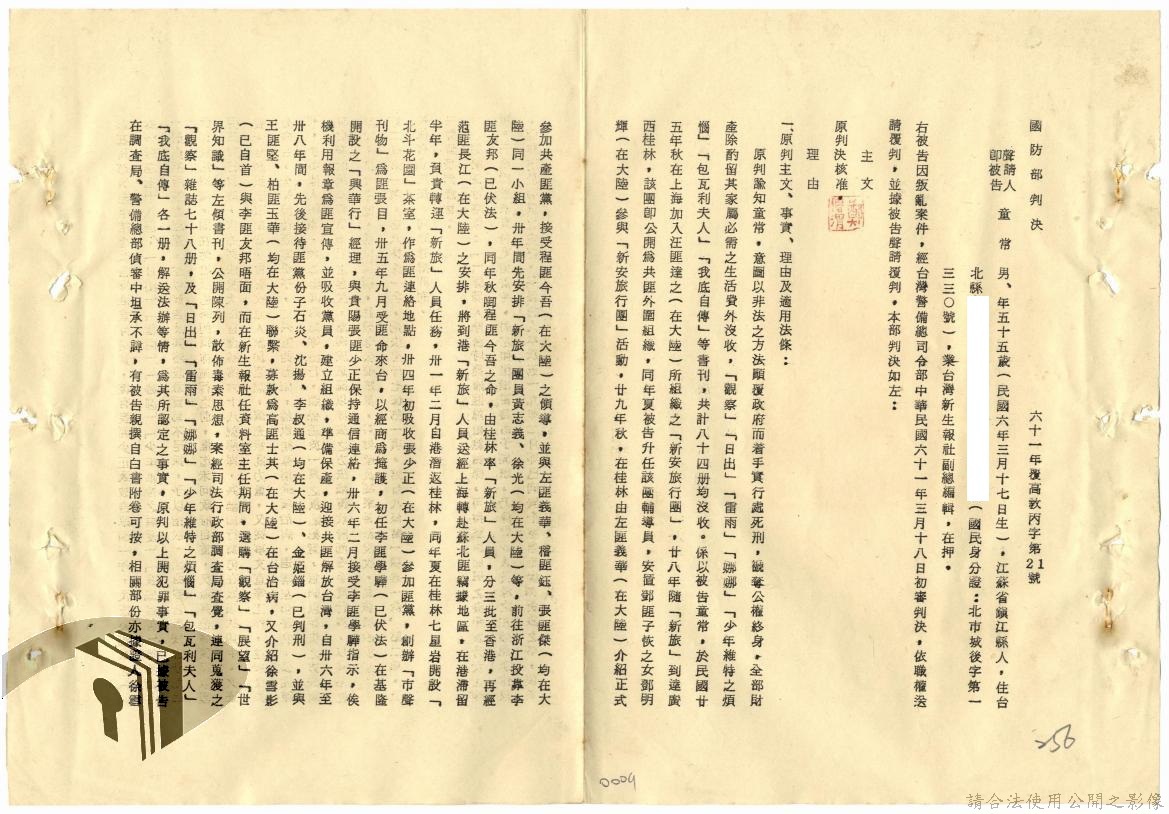 國防部判決
六十一年覆高敦丙字第21號
聲請人
即被告 童常 男、年五十五歲(民國六年三月十七日生),江蘇省鎮江縣人,住台
北縣 (國民身分證:北市城後字第一
三三〇號),業台灣新生報社副總編輯,在押。
右被告因叛亂案件,經台灣警備總司令部中華民國六十一年三月十八日初審判決,依職權送
請覆判,並據被告聲請覆判,本部判決如左:
主文
原判決核准。
理由
一、原判主文、事實、理由及適用法條:
原判諭知童常,意圖以非法之方法顛覆政府而着手實行處死刑,褫奪公權終身,全部財
產除酌留其家屬必需之生活費外沒收,「觀察」「日出」「雷雨」「娜娜」「少年維特之煩
惱」「包瓦利夫人」「我底自傳」等書刊,共計八十四册均沒收。係以被告童常,於民國廿
五年秋在上海加入汪匪達之(在大陸)所組織之「新安旅行團」,廿八年隨「新旅」到達廣
西桂林,該團即公開為共匪外圍組織,同年夏被告升任該團輔導員,安置鄧匪子恢之女鄧明
輝(在大陸)參與「新安旅行團」活動,廿九年秋,在桂林由左匪義華(在大陸)介紹正式
參加共產匪黨,接受程匪今吾(在大陸)之領導,並與左匪義華、稽匪鈺、張匪傑(均在大
陸)同一小組,卅年間先安排「新旅」團員黃志義、徐光(均在大陸)等,前往浙江投靠李
匪友邦(已伏法),同年秋啣程匪今吾之命,由桂林率「新旅」人員,分三批至香港,再經
范匪長江(在大陸)之安排,將到港「新旅」人員送經上海轉赴蘇北匪竊據地區,在港滯留
半年,負責轉運「新旅」人員任務,卅一年二月自港潛返桂林,同年夏在桂林七星岩開設「
北斗花園」茶室,作為匪連絡地點,卅四年初吸收張少正(在大陸)參加匪黨,創辦「市聲
刊物」為匪張目,卅五年九月受匪命來台,以經商為掩護,初任李匪學驊(已伏法)在基隆
開設之「興華行」經理,與貴陽張匪少正保持通信連絡,卅六年二月接受李匪學驊指示,俟
機利用報章為匪宣傳,並吸收黨員,建立組織,準備保產,迎接共匪解放台灣,自卅六年至
卅八年間,先後接待匪黨份子石炎、沈揚、李叔通(均在大陸)、金姬鎦(已判刑),並與
王匪堅、柏匪玉華(均在大陸)聯繫,募款為高匪士其(在大陸)在台治病,又介紹徐雪影
(已自首)與李匪友邦晤面,而在新生報社任資料室主任期間,選購「觀察」「展望」「世
界知識」等左傾書刊,公開陳列,散佈毒素思想,案經司法行政部調查局查覺,連同蒐獲之
「觀察」雜誌七十八册,及「日出」「雷雨」「娜娜」「少年維特之煩惱」「包瓦利夫人」
「我底自傳」各一册,解送法辦等情,為其所認定之事實,原判以上開犯罪事實,已據被告
在調查局、警備總部偵審中坦承不諱,有被告親撰自白書附卷可按,相關部份亦據證人徐雪
256
0009
請合法使用公開之影像